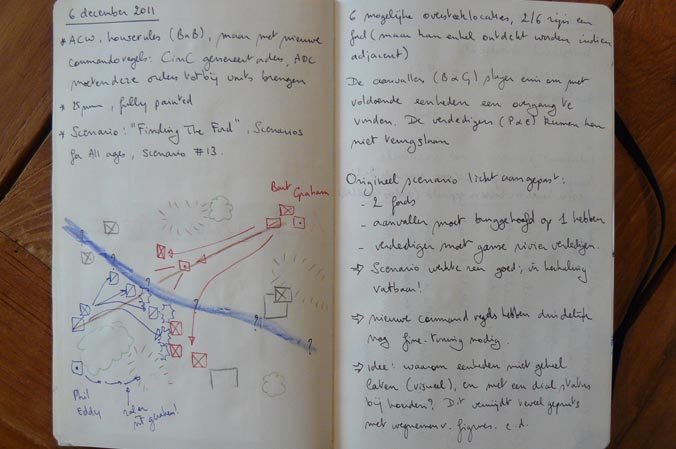 6 december 2011
* ACW, houserules (BnB), maar met nieuwe
commandoregels: CinC genereert orders, ADC
moeten deze orders tot bij units brengen
* 15mm, fully painted
* Scenario: "Finding The Ford", Scenarios
for All ages, Scenario #13.
Bart
Graham
Phil
Eddy
6 mogelijke oversteeklocaties, 2/6 zijn een
ford (maar kan enkel ontdekt worden indien
adjacent)
De aanvallers (B&G) slagen erin om met
voldoende eenheden een overgang te
vinden. De verdedigers (P&E) kunnen hen
niet terugslaan
Origineel scenario licht aangepast:
- 2 fords
- aanvaller moet bruggehoofd op 1 hebben
- verdediger moet ganse rivier verdedigen.
⇒ Scenario werkte zeer goed, is herhaling
vatbaar!
⇒ nieuwe command regels hebben duidelijk
nog fine-tuning nodig.
⇒ idee: waarom eenheden niet geheel
laten (visueel), en met een dial status
bijhouden? Dit vermijdt teveel gepruts
met wegnemen v. figures. e.d.